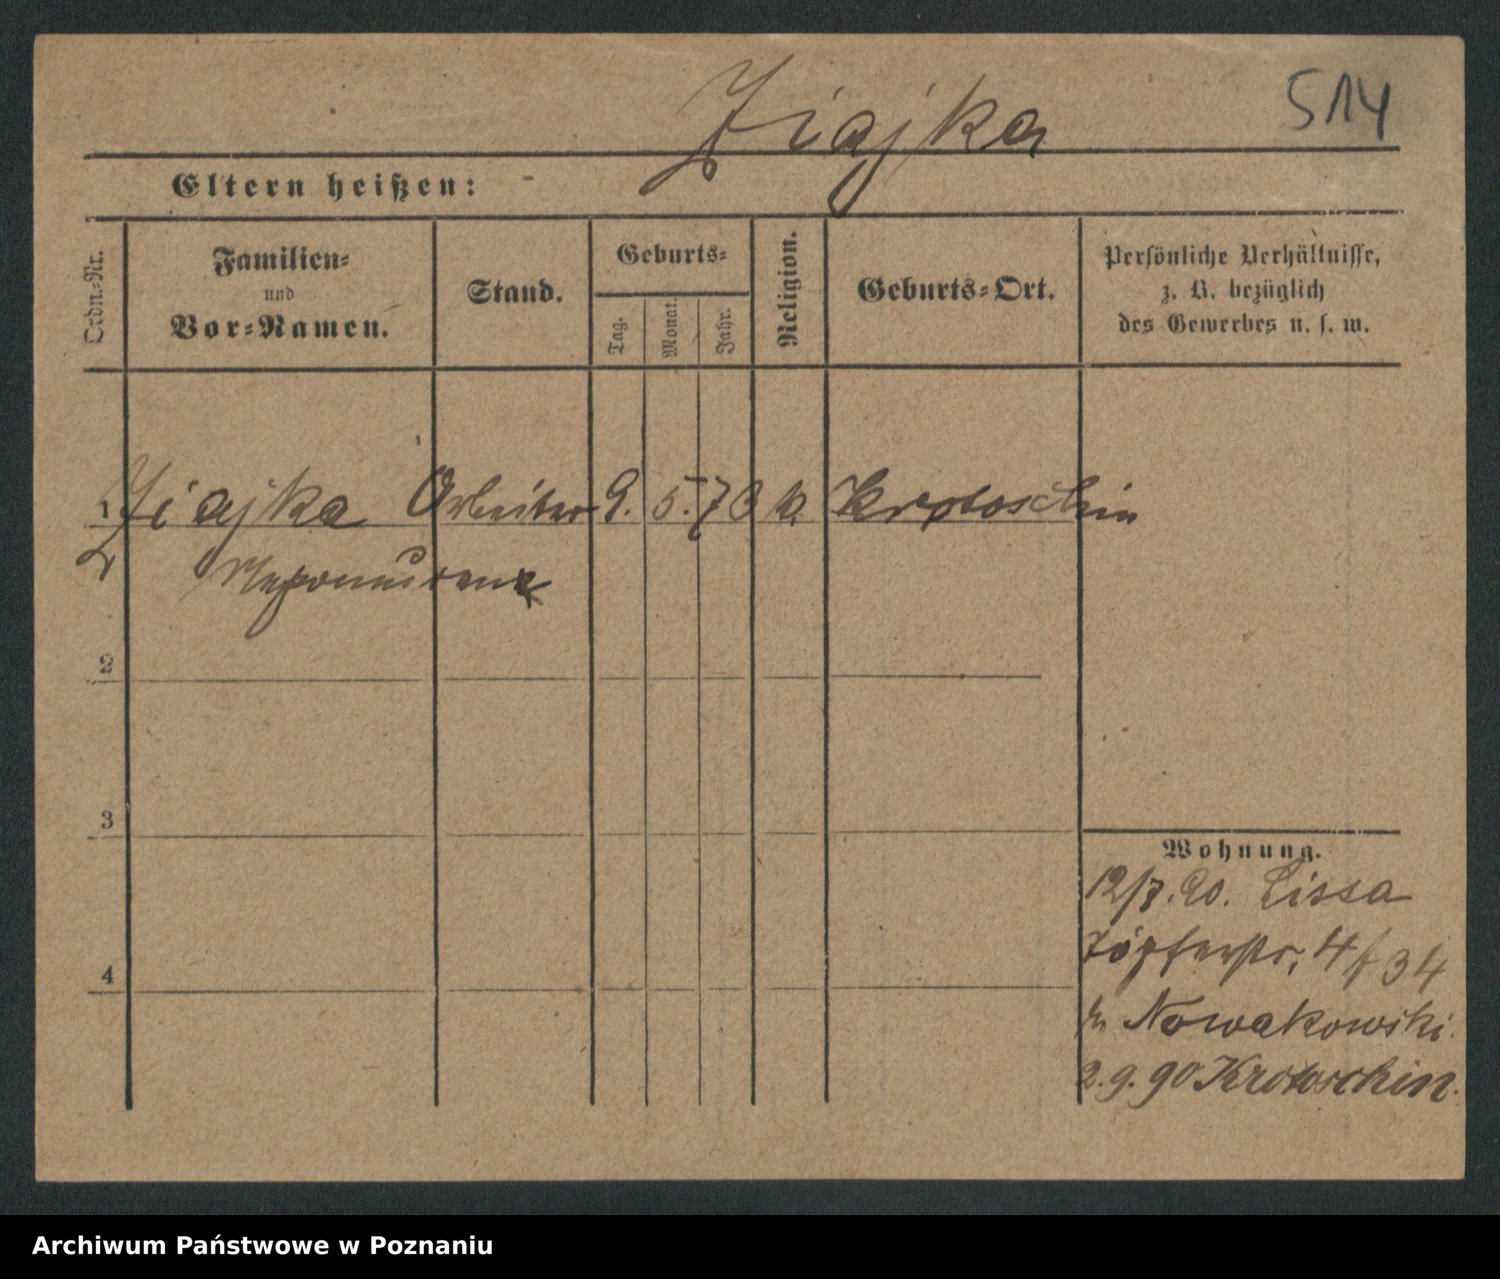 Ziajka
514
Eltern heißen: -
Ordn.-Nr.
Familien-
und
Vor-Namen.
Stand.
Geburts-
Tag.
Monat.
Jahr.
Religion.
Geburts-Ort.
Persönliche Verhältnisse,
z. B. bezüglich
des Gewerbes u. s. w.
1 Ziajka Arbeiter 9. 5. 73 k. Krotoschin
Nepomucen
2
3
4
Wohnung.
12/7.90. Lissa
Töpferstr. 4 f 34
Nowakowski.
2.9.90 Krotoschin.
Archiwum Państwowe w Poznaniu